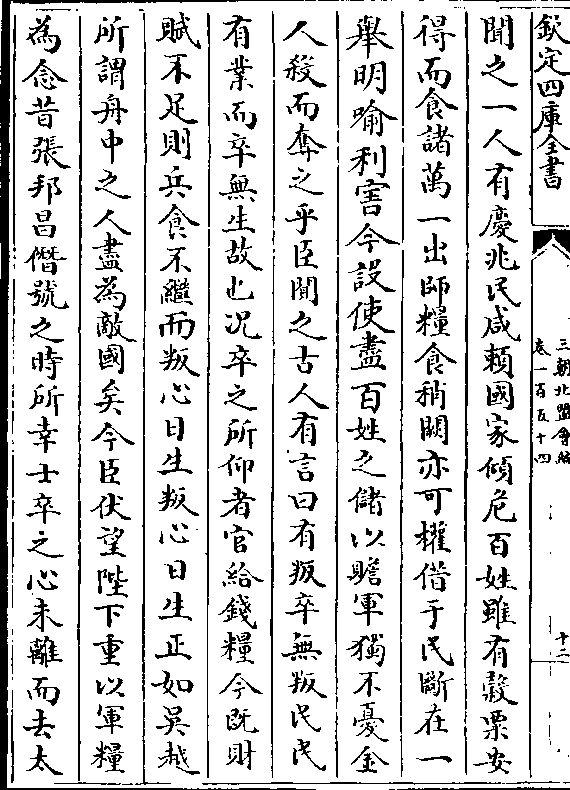 欽定四庫全書
三朝北盟會編
卷一百五十四
十二
聞之一人有慶兆民咸賴國家傾危百姓雖有榖粟安
得而食諸萬一出師糧食稍闕亦可權借于民斷在一
舉明喻利害今設使盡百姓之儲以贍軍獨不憂金
人殺而奪之乎臣聞之古人有言曰有叛卒無叛民民
有業而卒無生故也况卒之所仰者官給錢糧今既財
賦不足則兵食不繼而叛心日生叛心日生正如吴越
所謂舟中之人盡為敵國矣今臣伏望陛下重以軍糧
為念昔張邦昌僭號之時所幸士卒之心未離而去太